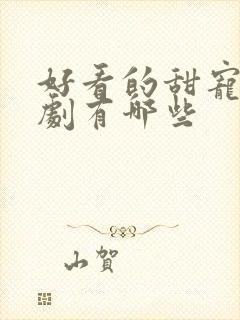 好看的甜寵
劇有哪些
小賀